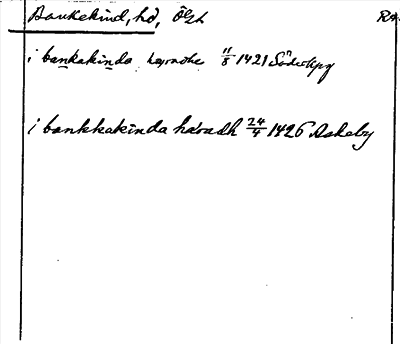 Bankekind, hd, Ögl. RA.
i bankakinda hæradhe 11/8 1421 Söderköpg
i bankkakinda háradh 24/4 1426 Askeby